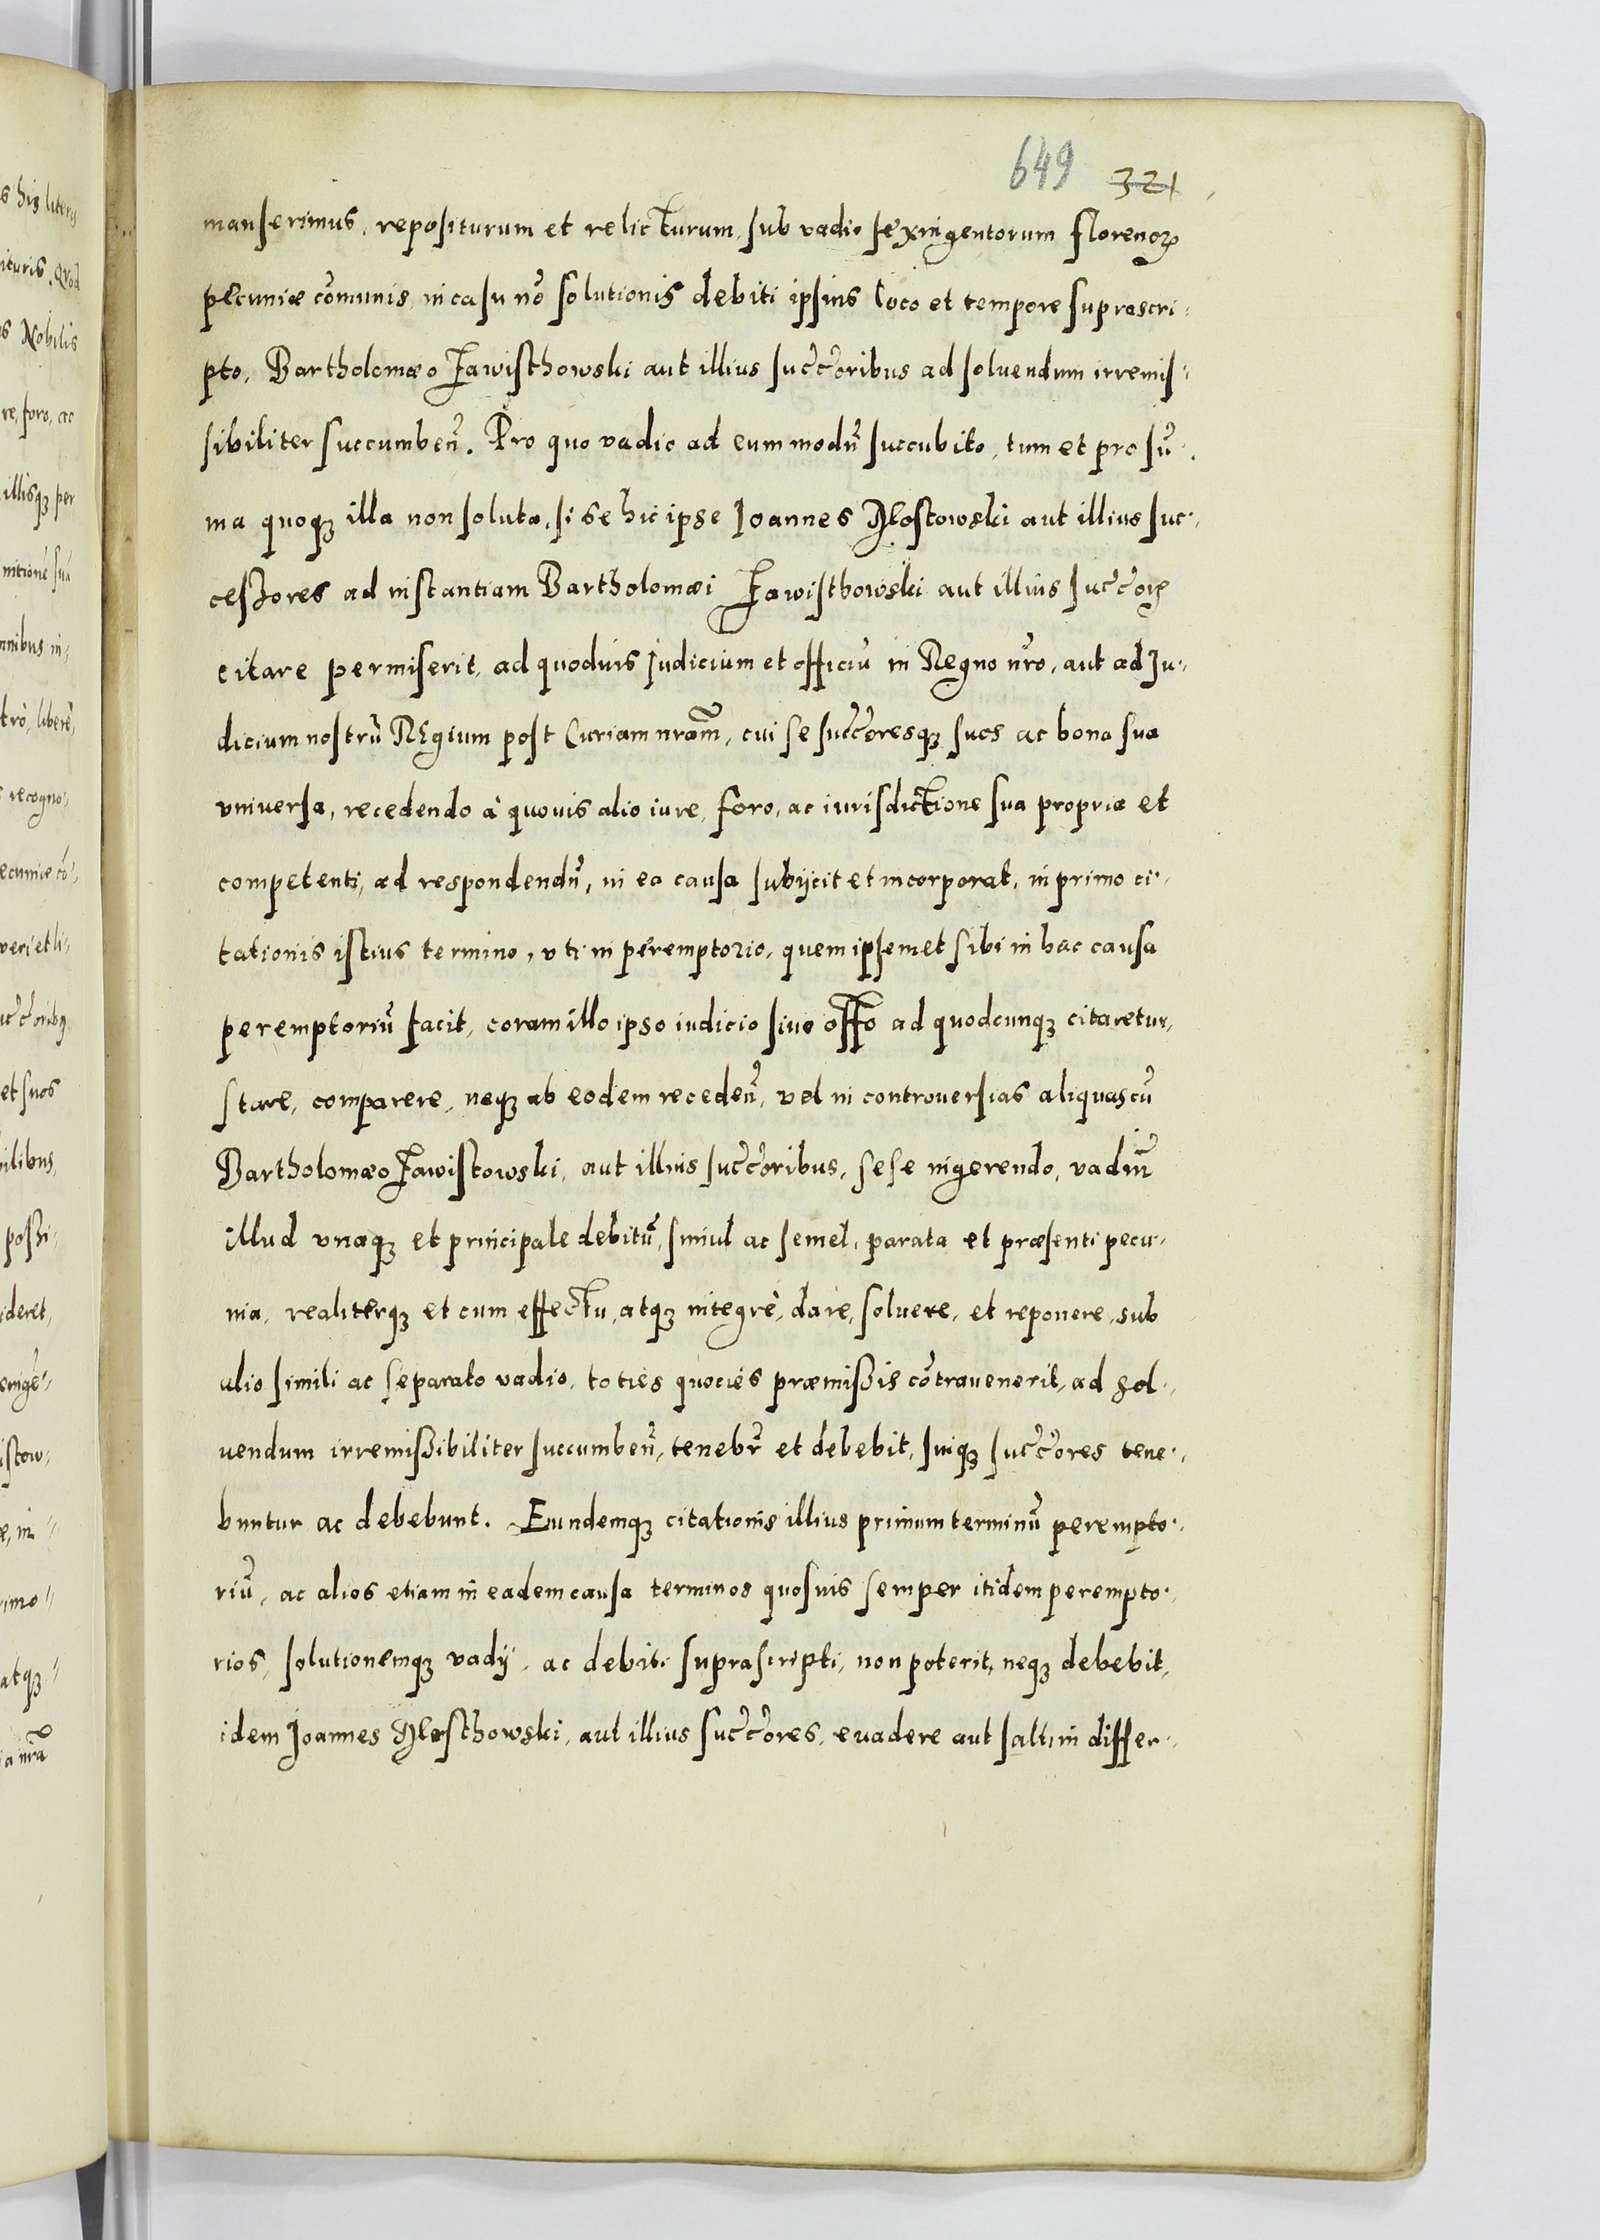 649 321
manserimus, repositurum et relicturum, sub vadio sexingentorum florenoꝝ
pecuniæ cōmunis, in casu nō solutionis debiti ipsius loco et tempore suprascri-
pto, Bartholomæo Zawisthowski aut illius succ̄oribus ad soluendum irremis-
sibiliter succumbeñ. Pro quo vadio ad eum modū succubito, tum et pro sū-
ma quoqꝫ illa non soluta, si se hic ipse Joannes Chostowski aut illius suc-
cessores ad instantiam Bartholomæi Zawisthowski aut illius succ̄oꝝ
citare permiserit, ad quoduis iudicium et officiū in Regno nr̄o, aut ad Ju-
dicium nostrū Regium post Curiam nrām, cui se succ̄oresqꝫ suos ac bona sua
vniuersa, recedendo à quouis alio iure, foro, ac iurisdictione sua propria et
competenti, ad respondendū, in ea causa subijcit et incorporat, in primo ci-
tationis istius termino, vti in peremptorio, quem ipsemet sibi in hac causa
peremptoriū facit, coram illo ipso iudicio siue off̄o ad quodcunqꝫ citaretur,
stare, comparere, neqꝫ ab eodem recedeñ, vel in controuersias aliquas cū
Bartholomæo Zawistowski, aut illius succ̄oribus, sese ingerendo, vadiū
illud vnaqꝫ et principale debitū, simul ac semel, parata et præsenti pecu-
nia, realiterqꝫ et cum effectu, atqꝫ integrè, dare, soluere, et reponere, sub
alio simili ac separato vadio, toties quocies præmissis cōtrauenerit, ad sol-
uendum irremissibiliter succumbeñ, tenebr̄ et debebit, suiqꝫ succ̄ores tene-
buntur ac debebunt. Eundemqꝫ citationis illius primum terminū perempto-
riū, ac alios etiam in eadem causa terminos quosuis semper itidem perempto-
rios, solutionemqꝫ vadij, ac debiti suprascripti, non poterit, neqꝫ debebit,
idem Joannes Chosthowski, aut illius succ̄ores, euadere aut saltim differ-